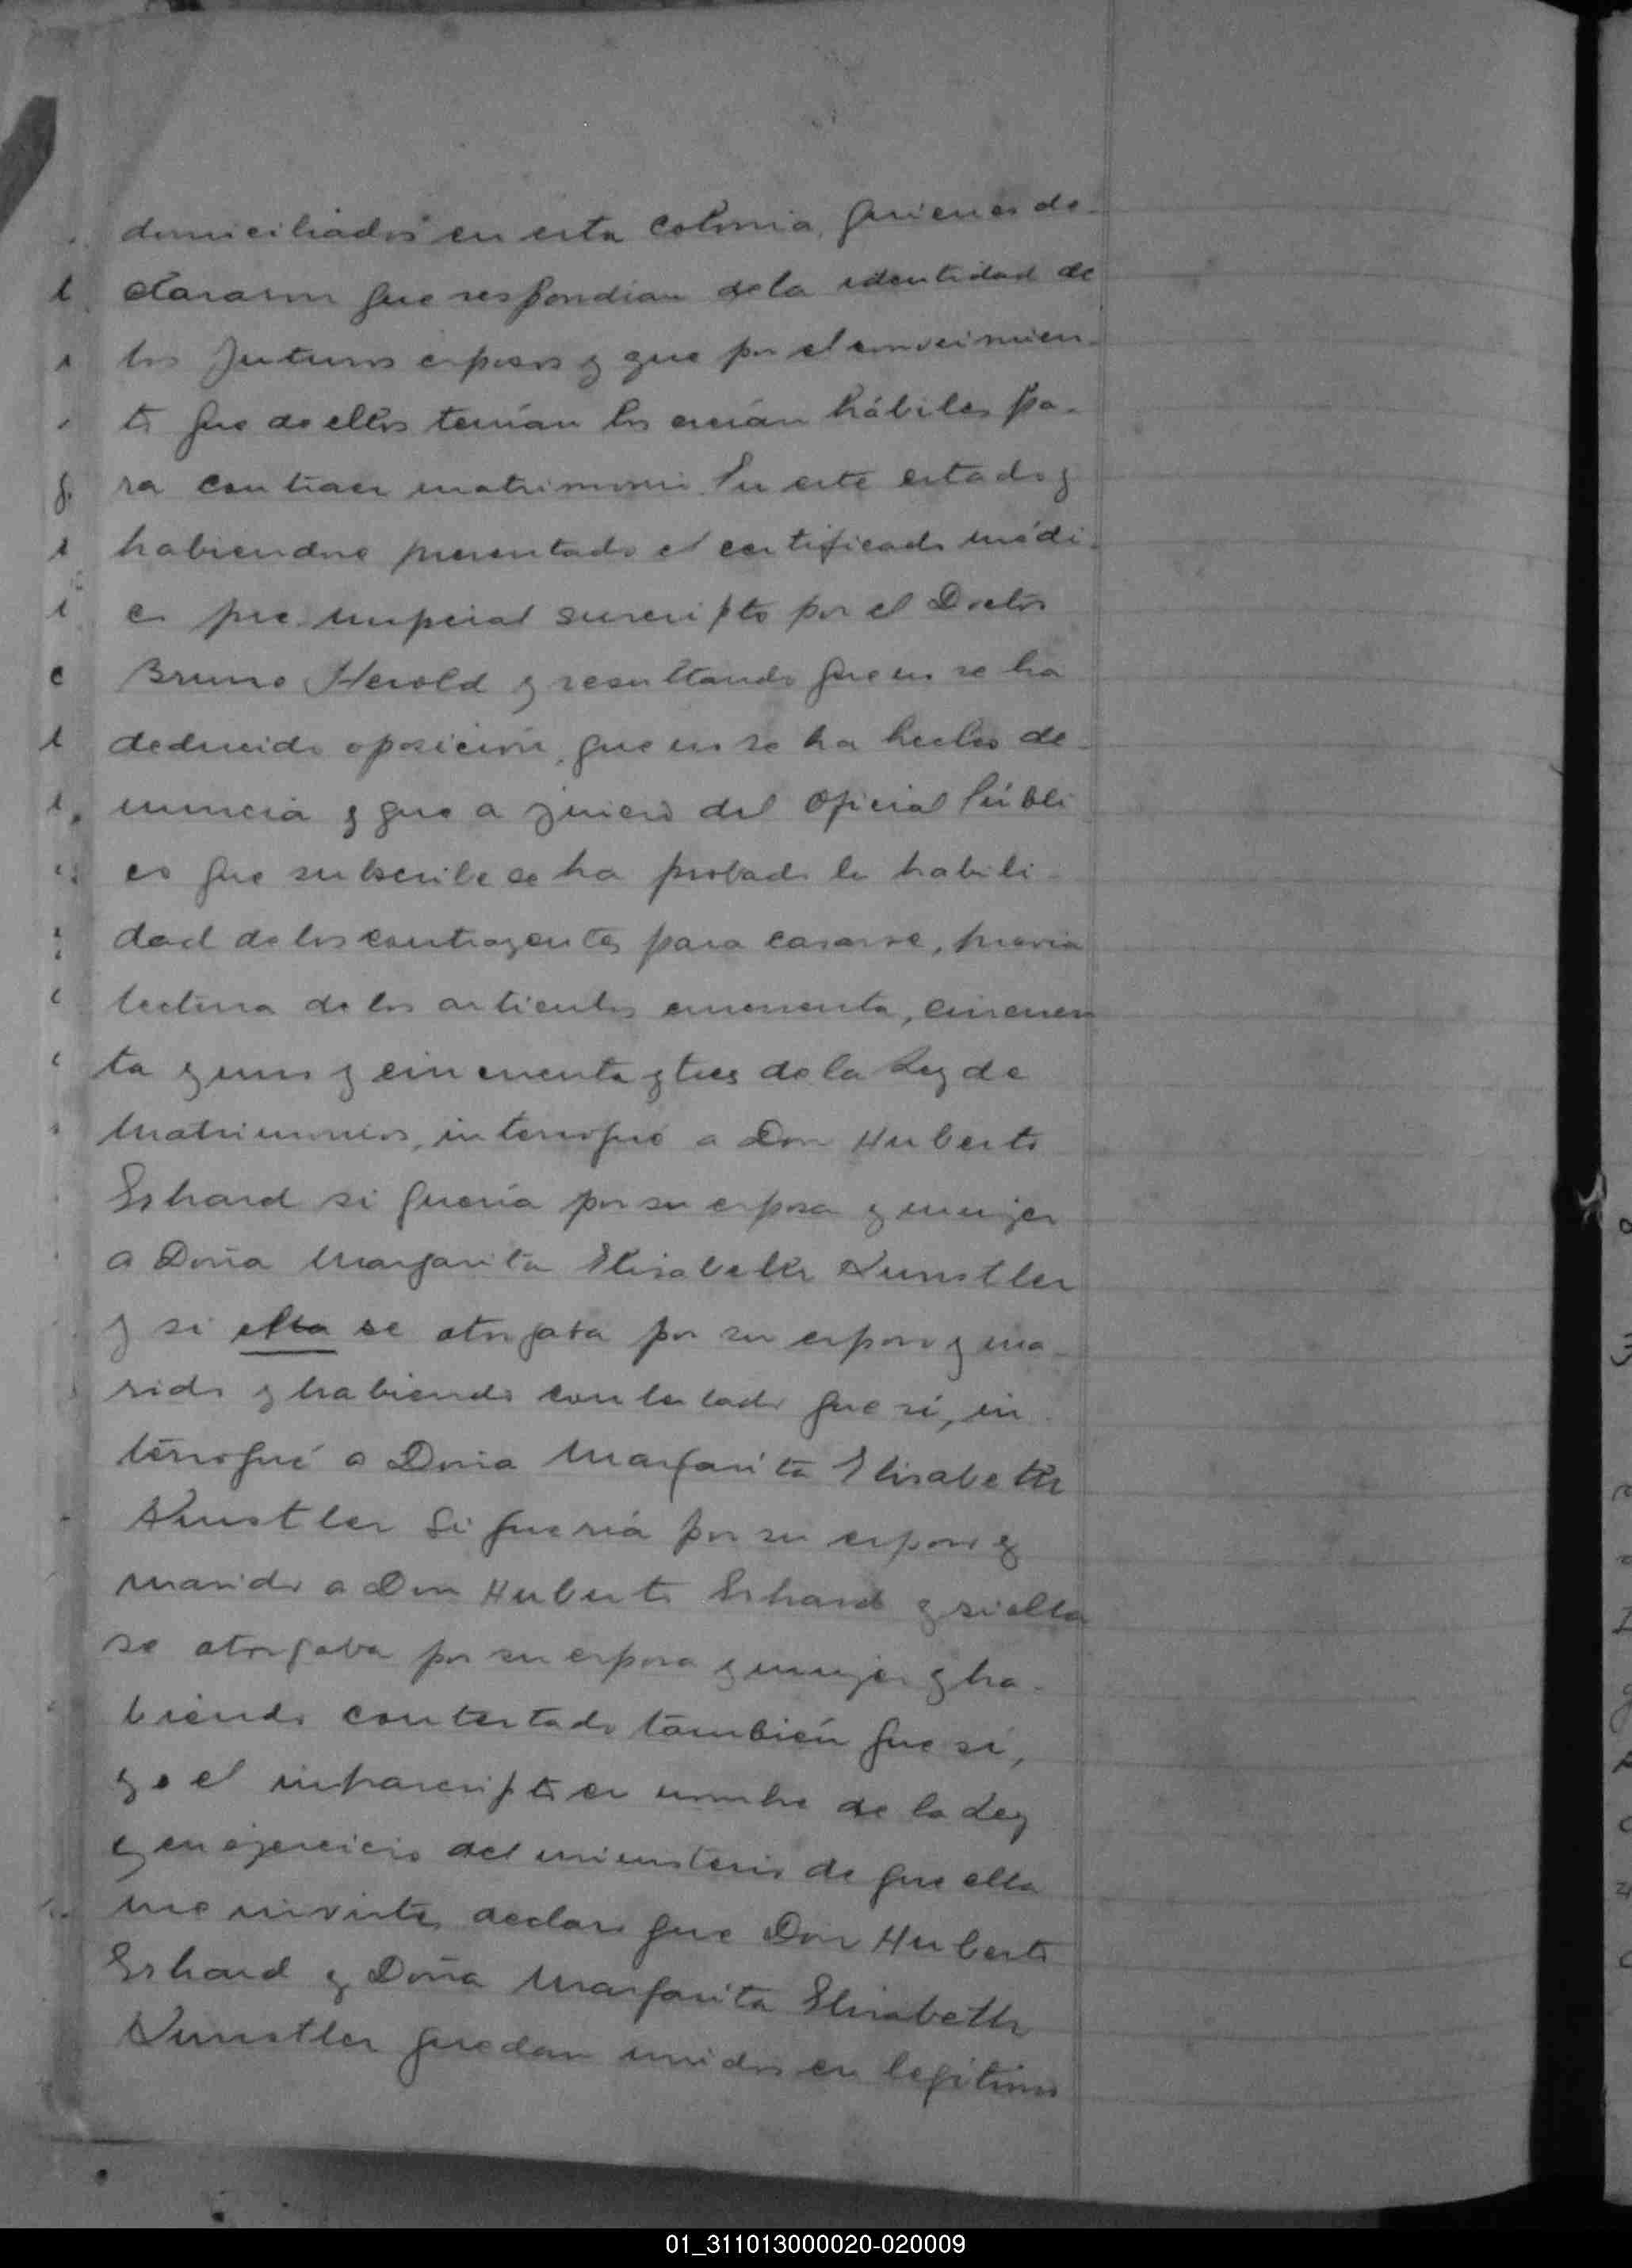 domiciliados en esta Colonia, quienes de-
clararon que respondian de la identidad de
los futuros esposos y que por el conocimien-
to que de ellos tenían los creían hábiles pa-
ra contraer matrimonio. En este estado y
habiendose presentado el certificado médi-
co pre-nupcial suscripto por el Doctor
Bruno Herold y resultando que no se ha
deducido oposición, que no se ha hecho de-
nuncia y que a juicio del Oficial Públi
co que subscribe se ha probado la habili-
dad de los contrayentes para casarse, previa
lectura de los articulos cincuenta, cincuen
ta y uno y cincuenta y tres de la Ley de
Matrimonios, interrogué a Don Huberto
Erhard si quería por su esposa y mujer
a Doña Margarita Elisabeth Kunstler
y si ella se otorgaba por su esposo y ma-
rido y habiendo contestado que sí, in
terrogué a Doña Margarita Elisabeth
Kunstler si quería por su esposo y
marido a Don Huberto Erhard y si ella
se otorgaba por su esposa y mujer y ha-
biendo contestado también que sí,
yo el infrascripto en nombre de la Ley
y en ejercicio del ministerio de que ella
me inviste, declaro que Don Huberto
Erhard y Doña Margarita Elisabeth
Kunstler quedan unidos en legítimo
01_311013000020-020009